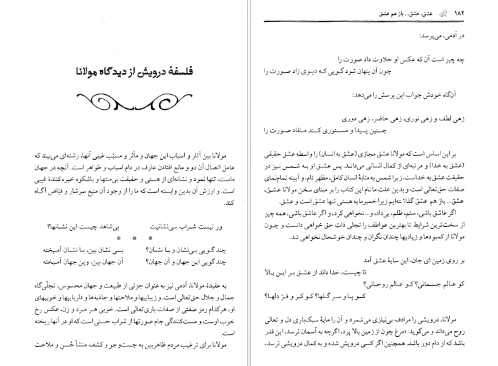 ۱۸۲ عشق، عشق... باز هم عشق
در آدمی، می‌پرسد:
چه چیز است آن که عکس او حلاوت داد صورت را
چون آن پنهان شود گویی که دیوی زاد صورت را
آنگاه خودش جواب این پرسش را می‌دهد:
زهی لطف و زهی نوری، زهی حاضر، زهی دوری
چنین پیدا و مستوری کند منقاد صورت را
بر این اساس است که مولانا عشق مجازی (عشق به انسان) را واسطه عشق حقیقی
(عشق به خدا) و مرتبه‌ای از کمال انسانی می‌داند. پس عشق او به شمس نیز در
حقیقت عشق به خداست، زیرا شمس به مثابهٔ انسان کامل، مظهر تام و آیینه تمام‌نمای
صفات حق‌تعالی است و بدین علت ما نام این کتاب را بر مبنای سخن مولانا عشق،
عشق... باز هم عشق گذارده‌ایم زیرا خمیرمایه هستی تنها عشق است و عشق.
اگر عاشق باشی، ستم، ظلم، بی‌داد و... نخواهی کرد، و اگر عاشق باشی، همه چیز
از سخت‌ترین شرایط تا بهترین عواطف را تجلی ذات حق خواهی دانست و چون
مولانا از کمبودها و زیادیها چندان نگران و چندان خوشحال نخواهی شد.
بر روی زمین ای جان، این سایهٔ عشق آمد
تا چیست، خدا داند از عشق بر این بالا
کو عالم جسمانی؟ کو عالم روحانی؟
کو پا و سر گلها؟ کو کر و فر دلها؟
مولانا، درویشی را مرادف بی‌نیازی می‌شمرد و آن را مایهٔ سبک‌باری دل و تعالی
روح می‌داند و می‌گوید: «مرغ چون از زمین بالا پرد، اگرچه به آسمان نرسد، این قدر
باشد که از دام دور باشد. همچنین اگر کسی درویش شده و به کمال درویشی نرسد،
فلسفهٔ درویش از دیدگاه مولانا
مولانا بین آثار و اسباب این جهان و مآثر و مسبّب غیبی آنها، رشته‌ای می‌بیند که
عامل اتصال آن دو و مانع افتادن عارف در دام اسباب و ظواهر است. آنچه در جهان
است، تنها نمود و نشانه‌ای از هستی و حقیقت بی‌منتها و باشکوه خیره‌کنندهٔ غیبی
است. و ارزش آن بدین وابسته است که ما را از وجود آن منبع سرشار و فیّاض آگاه
کند.
ور نیست شراب بی‌نشانیت بی‌شاهد چیست این نشانها؟
* * *
چند گویی بی‌نشان و با نشان؟ بی‌نشان بین، با نشان آمیخته
چند گویی این جهان و آن جهان؟ آن جهان بین، وین جهان آمیخته
به عقیدهٔ مولانا، آدمی نیز به عنوان جزئی از طبیعت و جهان محسوس، تجلّی‌گاه
جمال و جلال حق‌تعالی است. و زیباییها و ملاحتها و جاذبه‌ها و دلرباییها و خوبیهای
او هر کدام رمز صفتی از صفات باری‌تعالی است. خوبی هر مرد و زن، عکس رخ
خوب اوست و مست‌کنندگی جام صورتها از شراب حسنی است که او در آنها ریخته
است.
مولانا برای ترغیب مردم ظاهربین به جست‌وجو و کشف منشأ حُسن و ملاحت